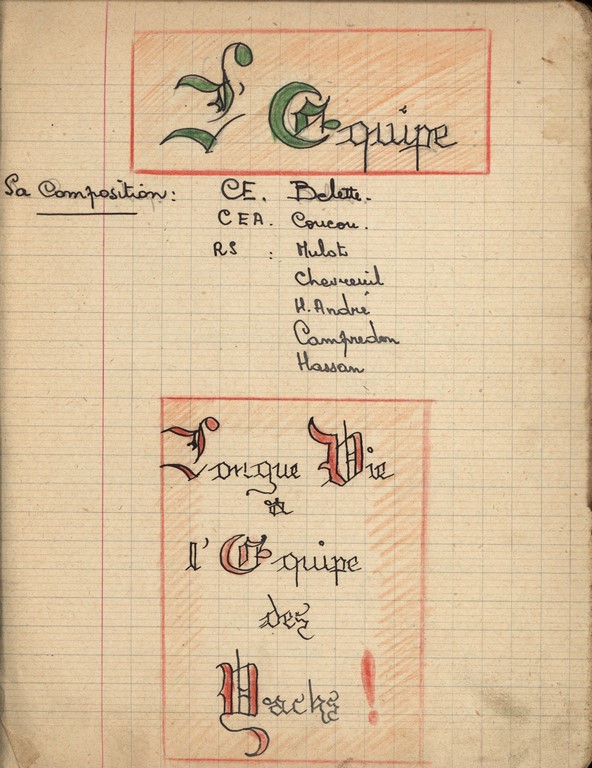 L'Equipe
Sa Composition : CE. Belette.
CEA. Coucou.
RS : Mulot
Chevreuil
H. André
Campredon
Hassan
Longue Vie
à
l'Equipe
des
Yacks !